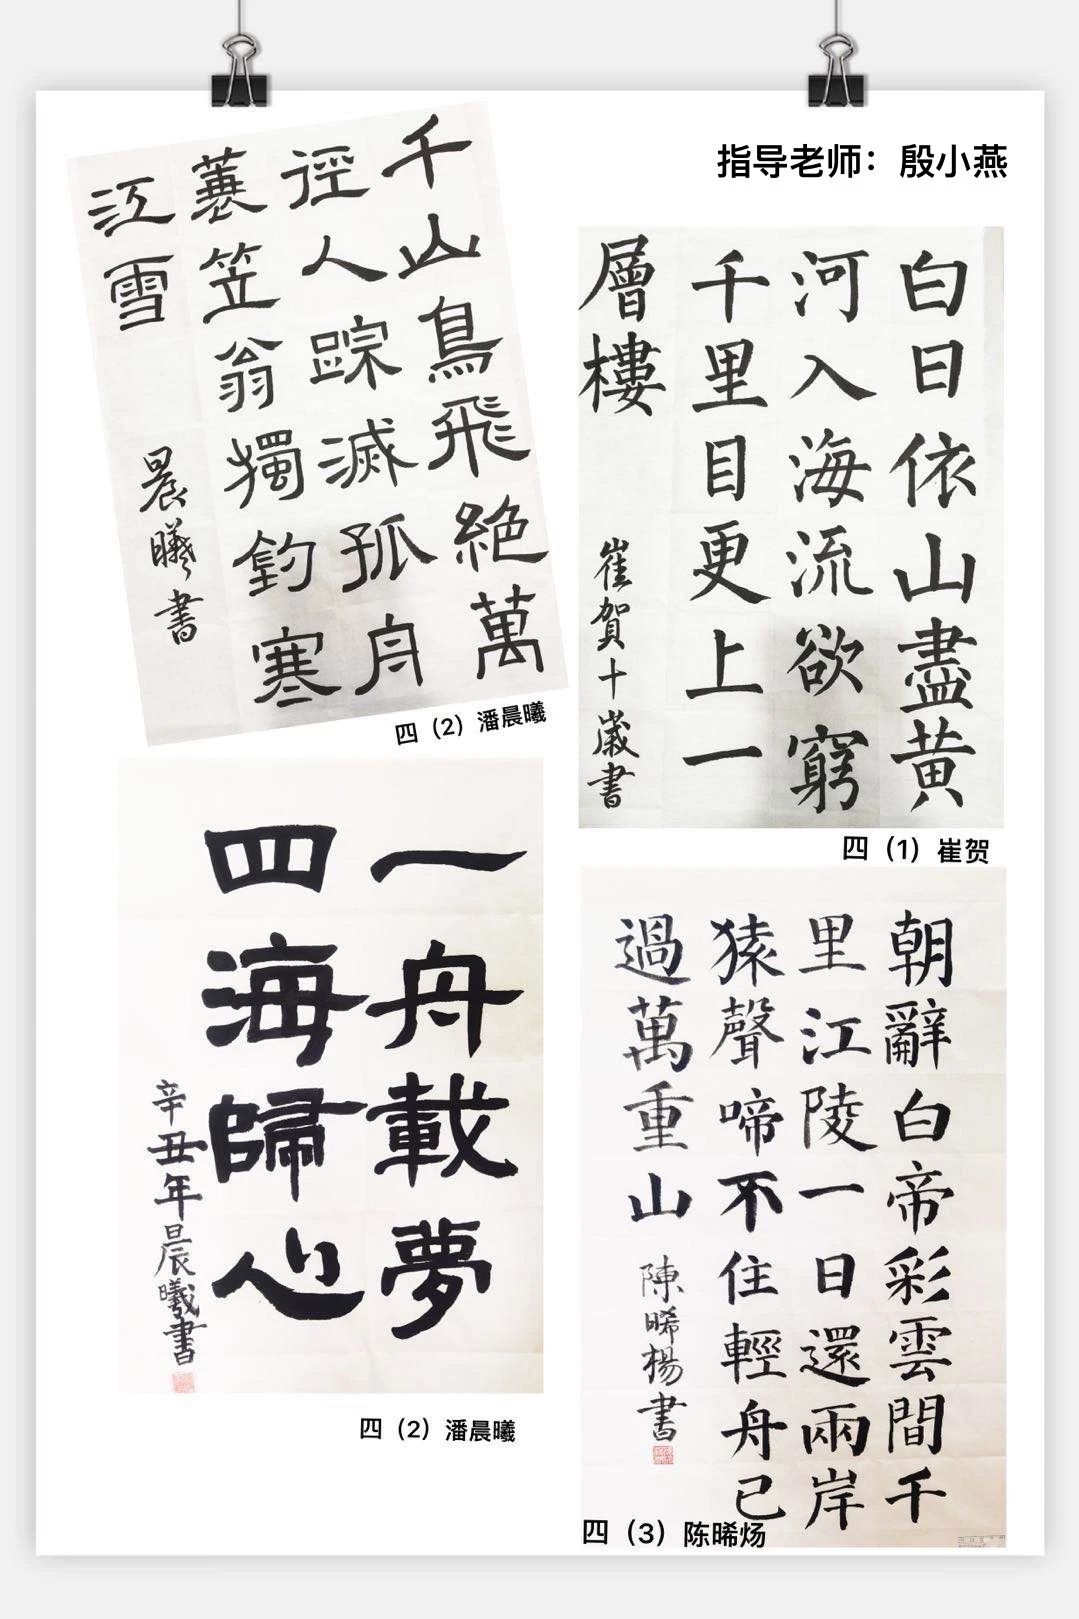 指导老师：殷小燕
千山鳥飛絶萬
徑人踪滅孤舟
蓑笠翁獨釣寒
江雪
晨曦書
四（2）潘晨曦
白日依山盡黄
河入海流欲窮
千里目更上一
層樓
崔賀十歲書
四（1）崔贺
一舟載夢
四海歸心
辛丑年晨曦書
四（2）潘晨曦
朝辭白帝彩雲間千
里江陵一日還兩岸
猿聲啼不住輕舟已
過萬重山
陳晞楊書
四（3）陈晞炀